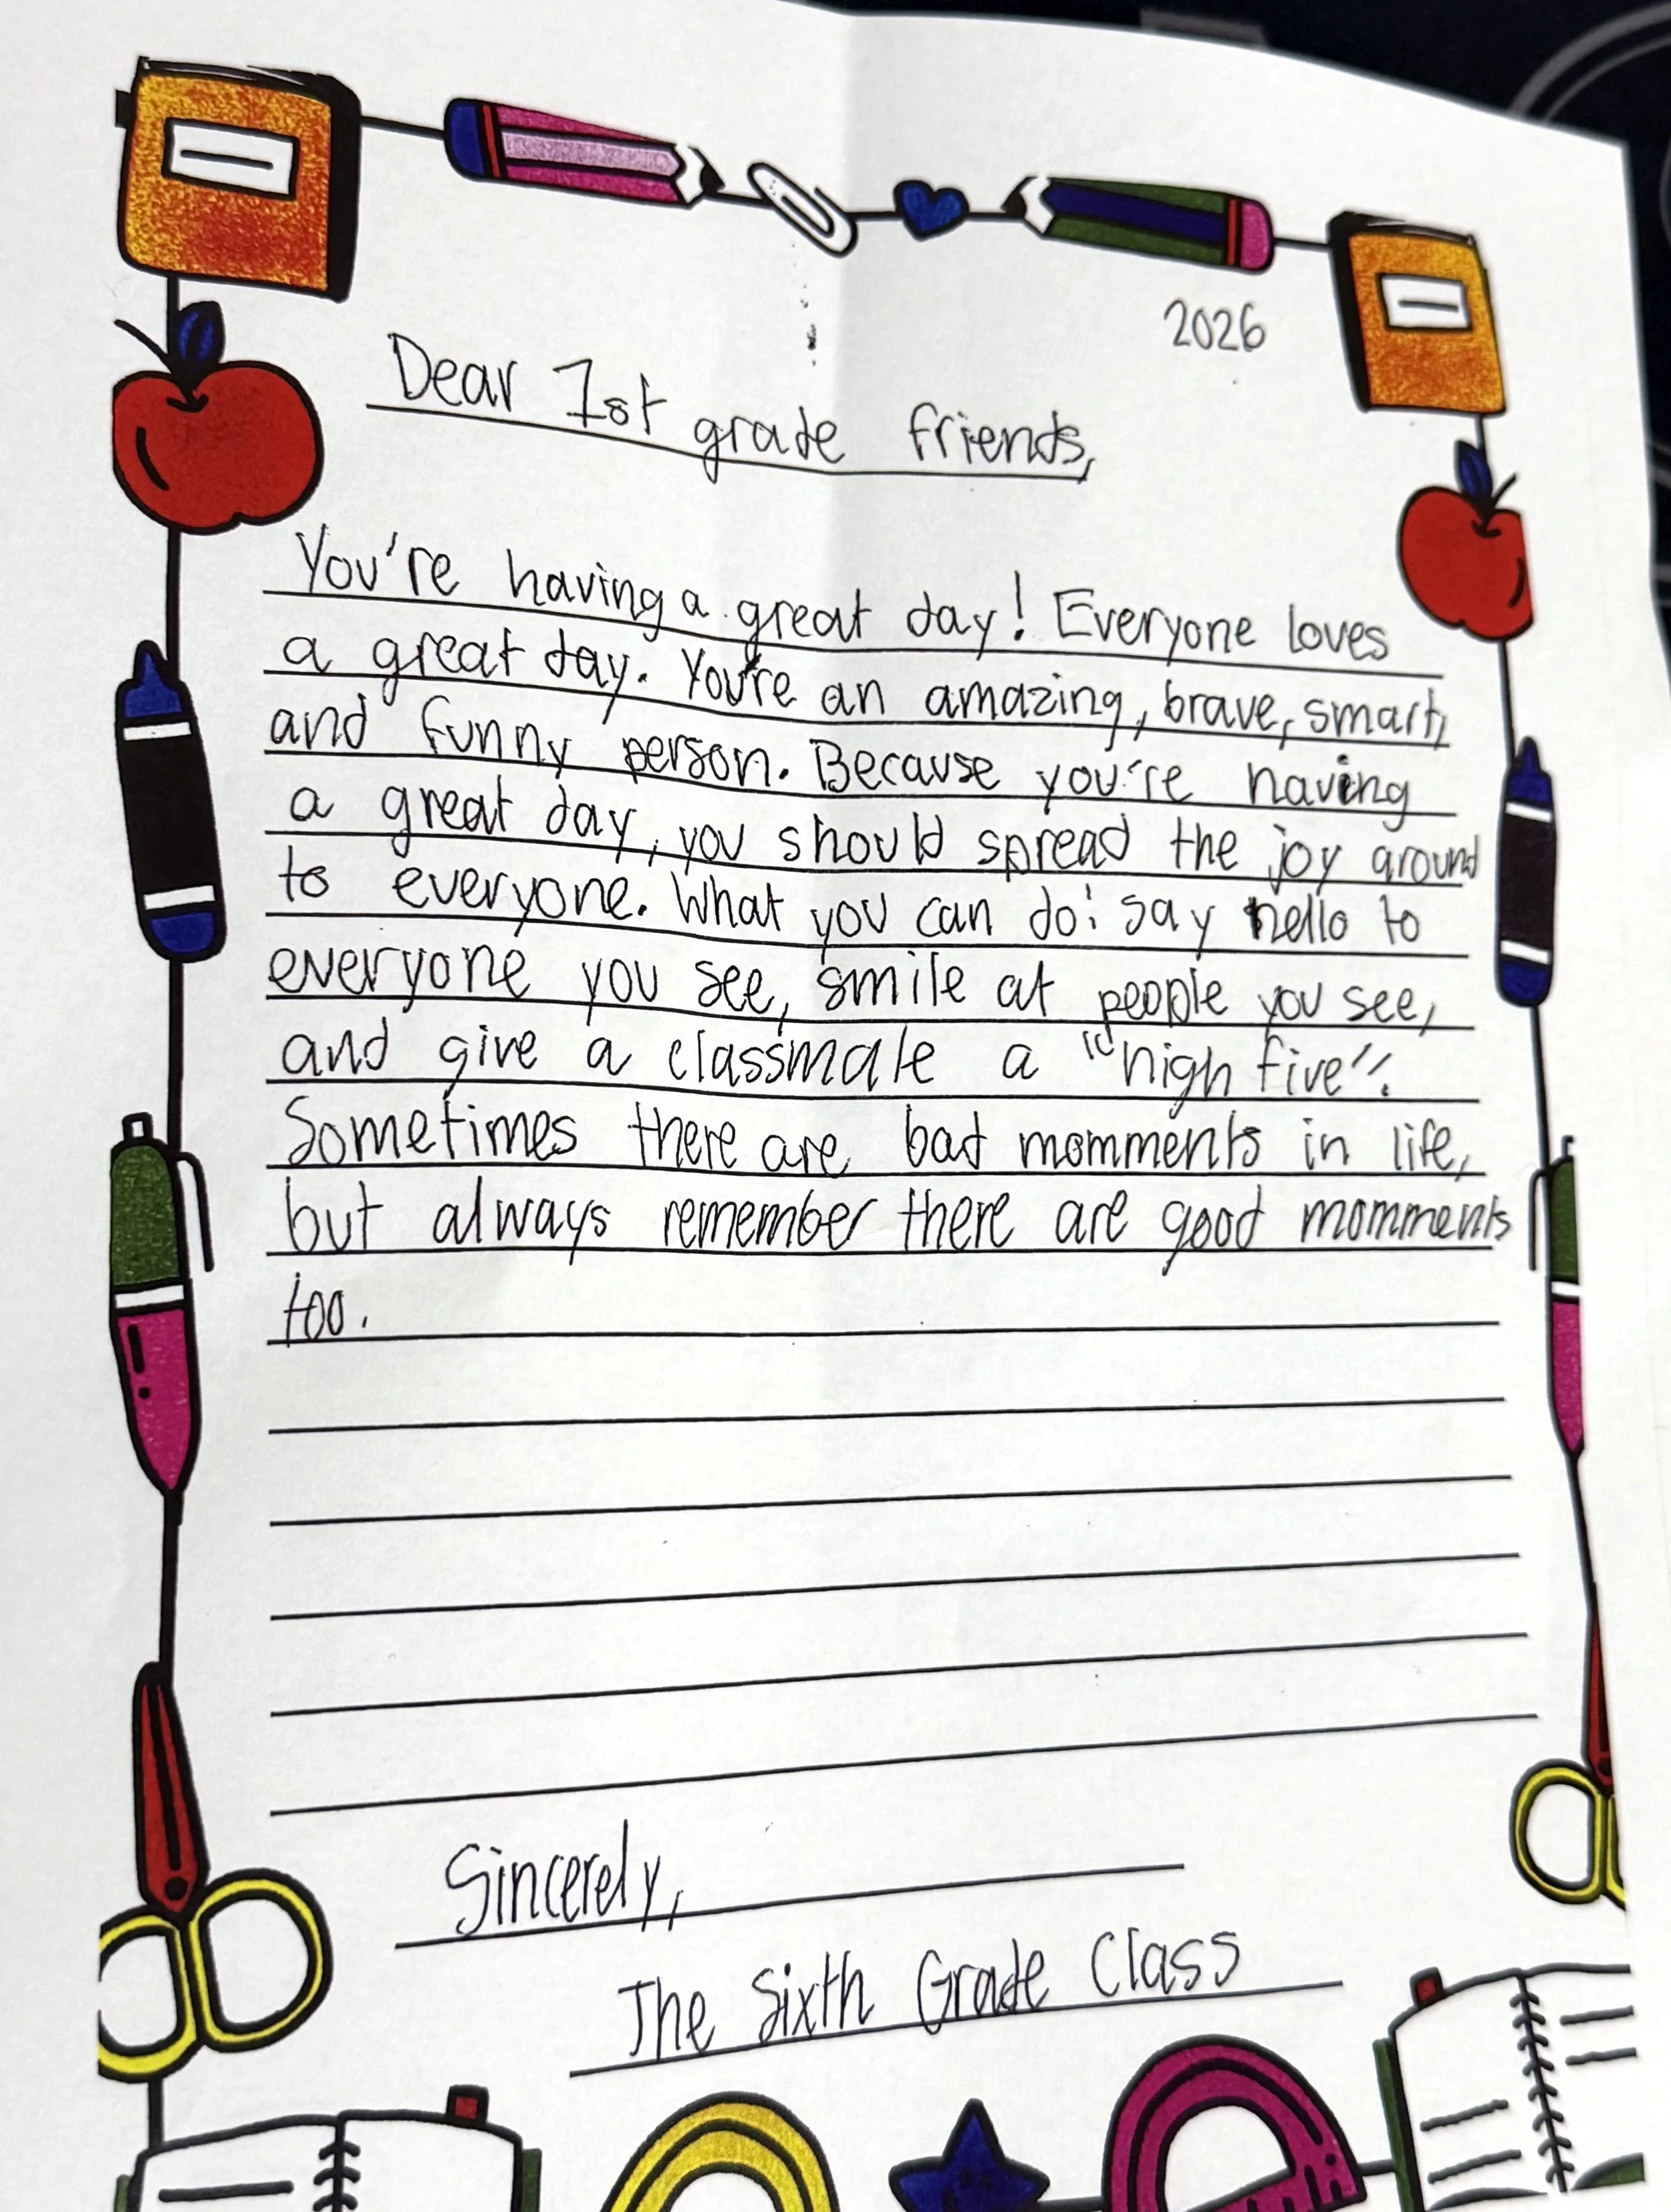 2026
Dear 1st grade friends,
You're having a great day! Everyone loves
a great day. You're an amazing, brave, smart,
and funny person. Because you're having
a great day, you should spread the joy around
to everyone. What you can do: say hello to
everyone you see, smile at people you see,
and give a classmate a "high five".
Sometimes there are bad momments in life,
but always remember there are good momments
too.
Sincerely,
The Sixth Grade Class